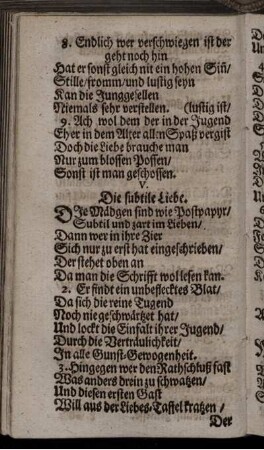 8. Endlich wer verschwiegen ist der
geht noch hin
Hat er sonst gleich nit ein hohen Sin̄/
Stille/fromm/und lustig seyn
Kan die Junggesellen
Niemals sehr verstellen. (lustig ist/
9. Ach wol dem der in der Jugend
Eher in dem Alter allen Spaß vergist
Doch die Liebe brauche man
Nur zum blossen Possen/
Sonst ist man geschossen.
V.
Die subtile Liebe.
DIe Mädgen sind wie Postpapyr/
Subtil und zart im Lieben/
Dann wer in ihre Zier
Sich nur zu erst hat eingeschrieben/
Der stehet oben an
Da man die Schrifft wol lesen kan.
2. Er findt ein unbeflecktes Blat/
Da sich die reine Tugend
Noch nie geschwärtzet hat/
Und lockt die Einfalt ihrer Jugend/
Durch die Verträulichkeit/
In alle Gunst-Gewogenheit.
3. Hingegen wer den Rathschluß fast
Was anders drein zu schwatzen/
Und diesen ersten Gast
Will aus der Liebes-Taffel kratzen/
Der